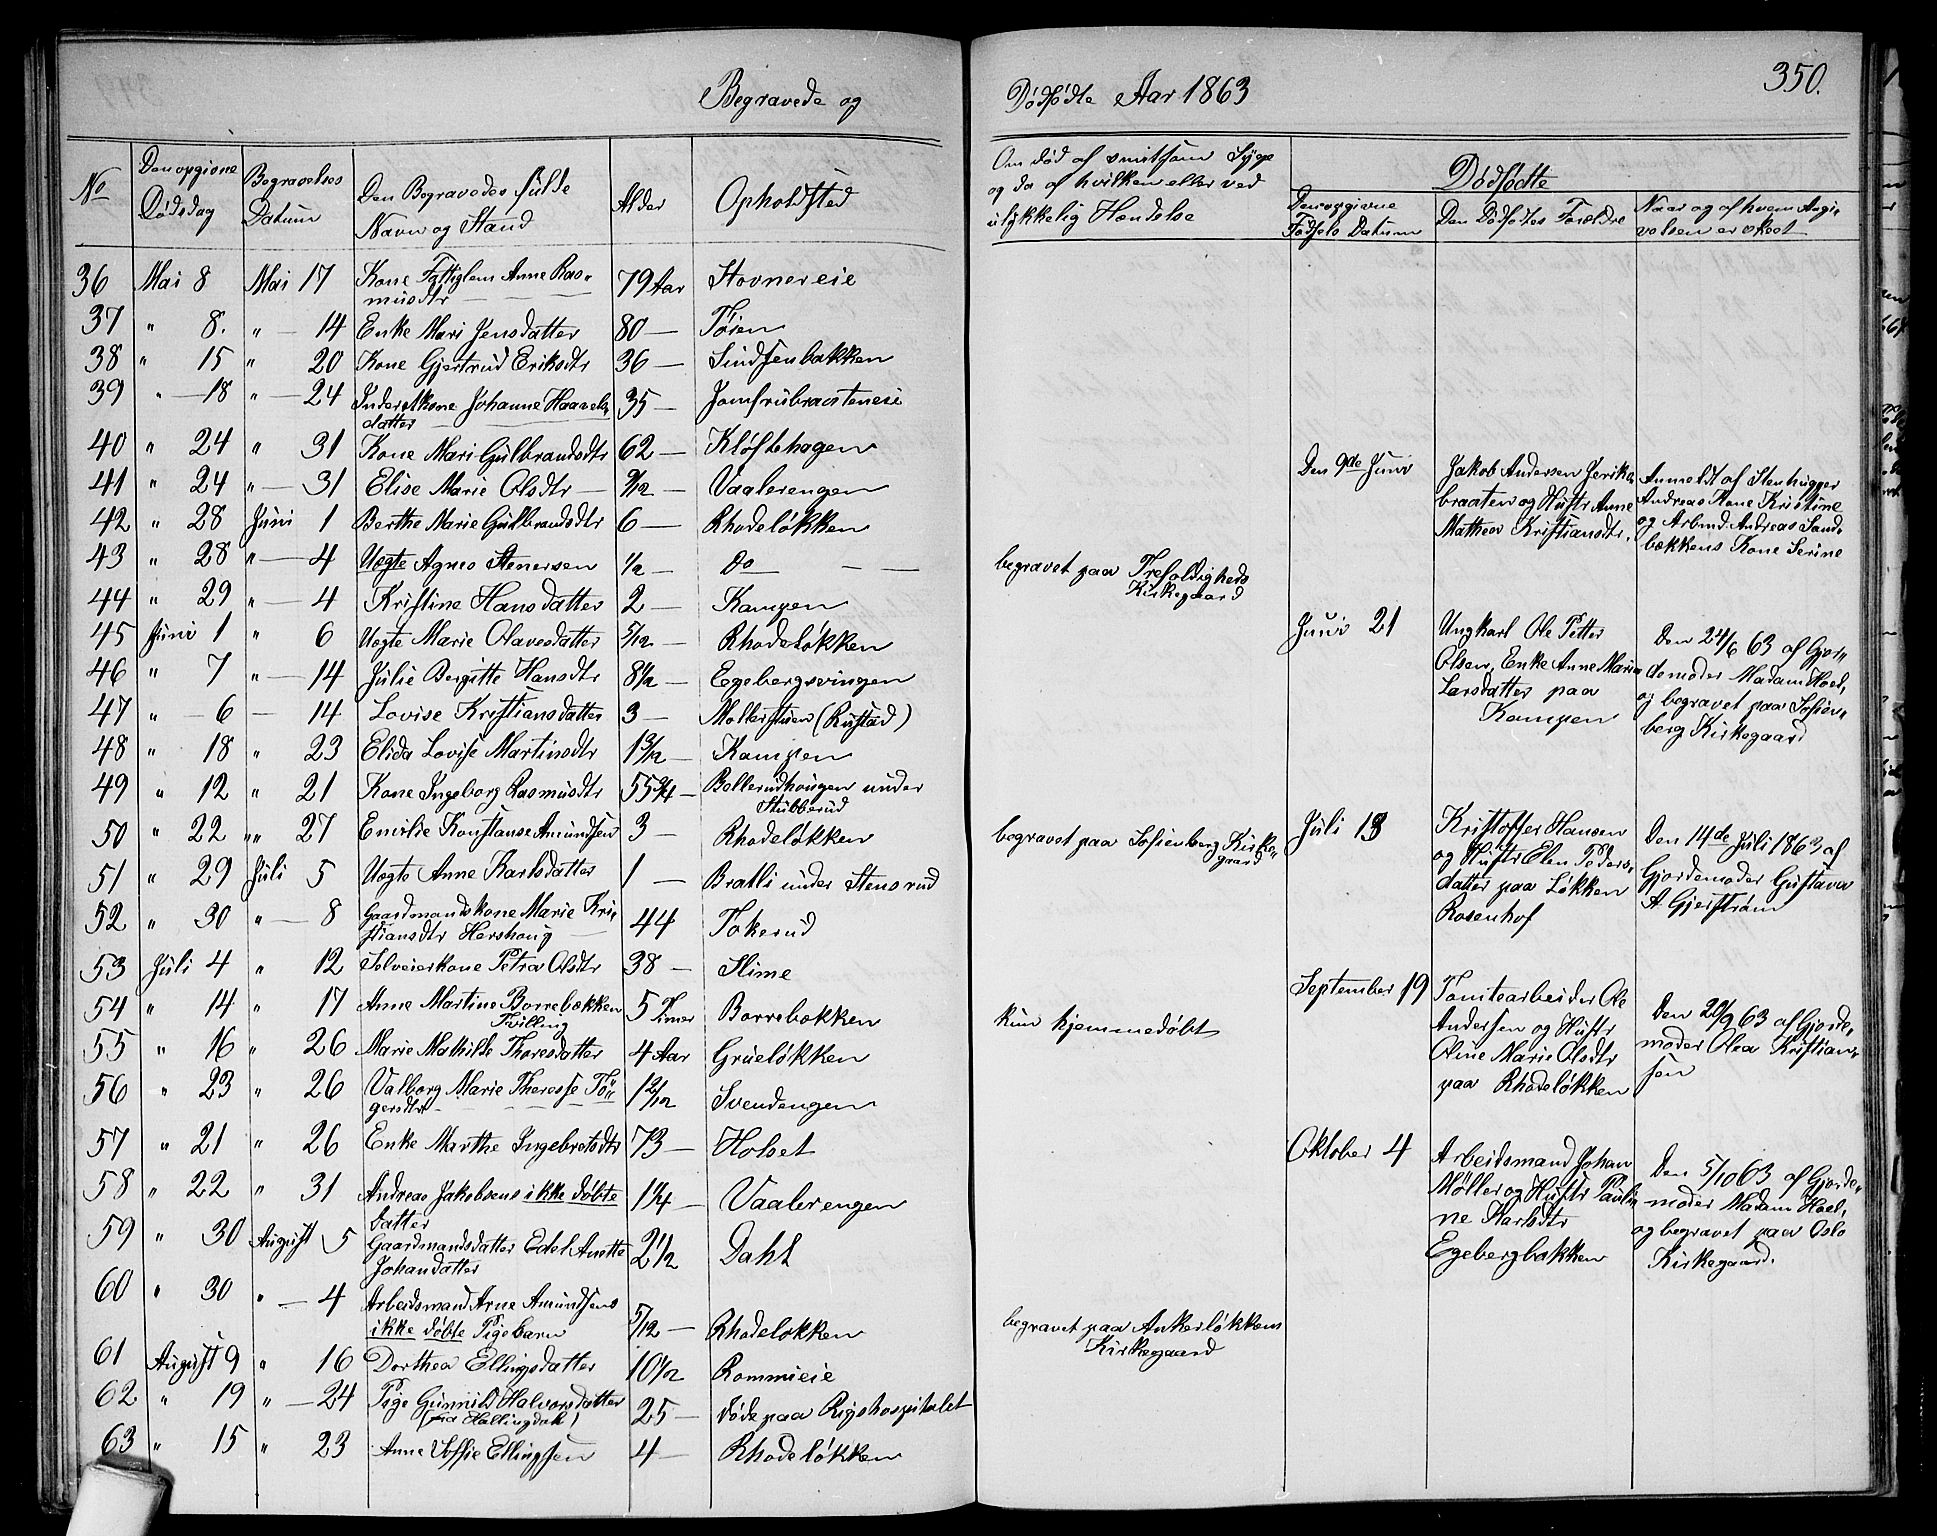 350.
Begravede og Dødfødte Aar 1863
No
Den opgivne Dødsdag
Begravelses Datum
Den Begravedes fulde Navn og Stand
Alder
Opholdsted
Om død af smitsom Syge
og da af hvilken eller ved
ulykkelig Hændelse
Dødfødte
Den opgivne Fødsels Datum
Den Dødfødtes Forældre
Naar og af hvem Angi-
velsen er skeet
36 Mai 8 Mai 17 Kone Fattiglem Anne Ras-
musdtr 79 Aar Stovnereie
37 " 8. " 14 Enke Mari Jensdatter 80 — Tøien
38 " 15 " 20 Kone Gjertrud Eriksdtr 36 — Sindsenbakken
39 " 18 " 24 Inderstkone Johanne Haavels-
datter 35 — Jomfrubraateneie
40 " 24 " 31 Kone Mari Gulbrandsdtr 62 — Kløftehagen
41 " 24 " 31 Elise Marie Olsdtr 9/12 — Vaalerengen
42 " 28 Juni 1 Berthe Marie Gulbrandsdtr 6 — Rhodeløkken
43 " 28 " 4 Uegte Agnes Stenersen 1/2 — Do — begravet paa Trefoldigheds
Kirkegaard
44 " 29 " 4 Kristine Hansdatter 2 — Kampen
45 Juni 1 " 6 Uegte Marie Olavesdatter 5/12 — Rhodeløkken
46 " 7 " 14 Julie Bergitte Hansdtr 8 1/2 — Egebergsvingen
47 " 6 — 14 Lovise Kristiansdatter 3 — Mollerstuen (Rustad)
48 " 18 " 23 Elida Lovise Martinsdtr 1 3/12 — Kampen
49 " 12 " 21 Kone Ingeborg Rasmusdtr 55 3/4 — Bollerudhougen under
Stubberud
50 " 22 " 27 Emilie Konstanse Amundsen 3 — Rhodeløkken begravet paa Sofienberg Kirke-
gaard
51 " 29 Juli 5 Uegte Anne Karlsdatter 1 — Bratli under Stensrud
52 " 30 " 8 Gaardmandskone Marie Kri-
stiansdtr Hershoug 44 Tokerud
53 Juli 4 " 12 Selveierkone Petra Olsdtr 38 — Slime
54 " 14 " 17 Anne Martine Borrebækken
Tvilling 5 Timer Borrebækken kun hjemmedøbt
55 " 16 " 26 Marie Mathilde Thoresdatter 4 Aar Grueløkken
56 " 23 " 26 Valborg Marie Therese Tø-
gersdtr 1 2/12 — Svendengen
57 " 21 " 26 Enke Marthe Ingebretsdtr 73 — Holset
58 " 22 " 31 Andreas Jakobsens ikke døbte
datter 1 1/4 — Vaalerengen
59 " 30 August 5 Gaardmandsdatter Edel Anette
Johandatter 2 1/2 Dahl
60 " 30 " 4 Arbeidsmand Arne Amundsens
ikke døbte Pigebarn 5/12 — Rhodeløkken begravet paa Ankerløkkens
Kirkegaard
61 August 9 " 16 Dorthea Ellingsdatter 10 1/2 Rommieie
62 " 19 " 24 Pige Gunnild Halvorsdatter
(fra Hallingdal) 25 — døde paa Rigshospitalet
63 " 15 " 23 Anne Soffie Ellingsen 4 — Rhodeløkken
Den 9de Juni
Jakob Andersen Jerike-
braaten og Hustr Anne
Mathea Kristiansdtr.
Anmeldt af Stenhugger
Andreas Kone Kristine
og Arbmd. Andreas Sand-
bækkens Kone Serine
Juni 21
Ungkarl Ole Petter
Olsen, Enke Anne Maria
Larsdatter paa
Kampen
Den 24/6 63 af Gjor-
demoder Madam Hoel,
og begravet paa Sofien-
berg Kirkegaard
Juli 13
Kristoffer Hansen
og Hustr Elen Peders-
datter paa Løkken
Rosenhof
Den 14de Juli 1863 af
Gjordemoder Gustava
A. Gjerstrøm
September 19
Tomtearbeider Ole
Andersen og Hustr
Oline Marie Olsdtr
paa Rhodeløkken
Den 20/9 63 af Gjorde-
moder Olea Kristian-
sen
Oktober 4
Arbeidsmand Johan
Møller og Hustr Pauli-
ne Karlsdtr
Egebergbakken
Den 5/10 63 af Gjorde-
moder Madam Hoel,
og begravet paa Oslo
Kirkegaard.